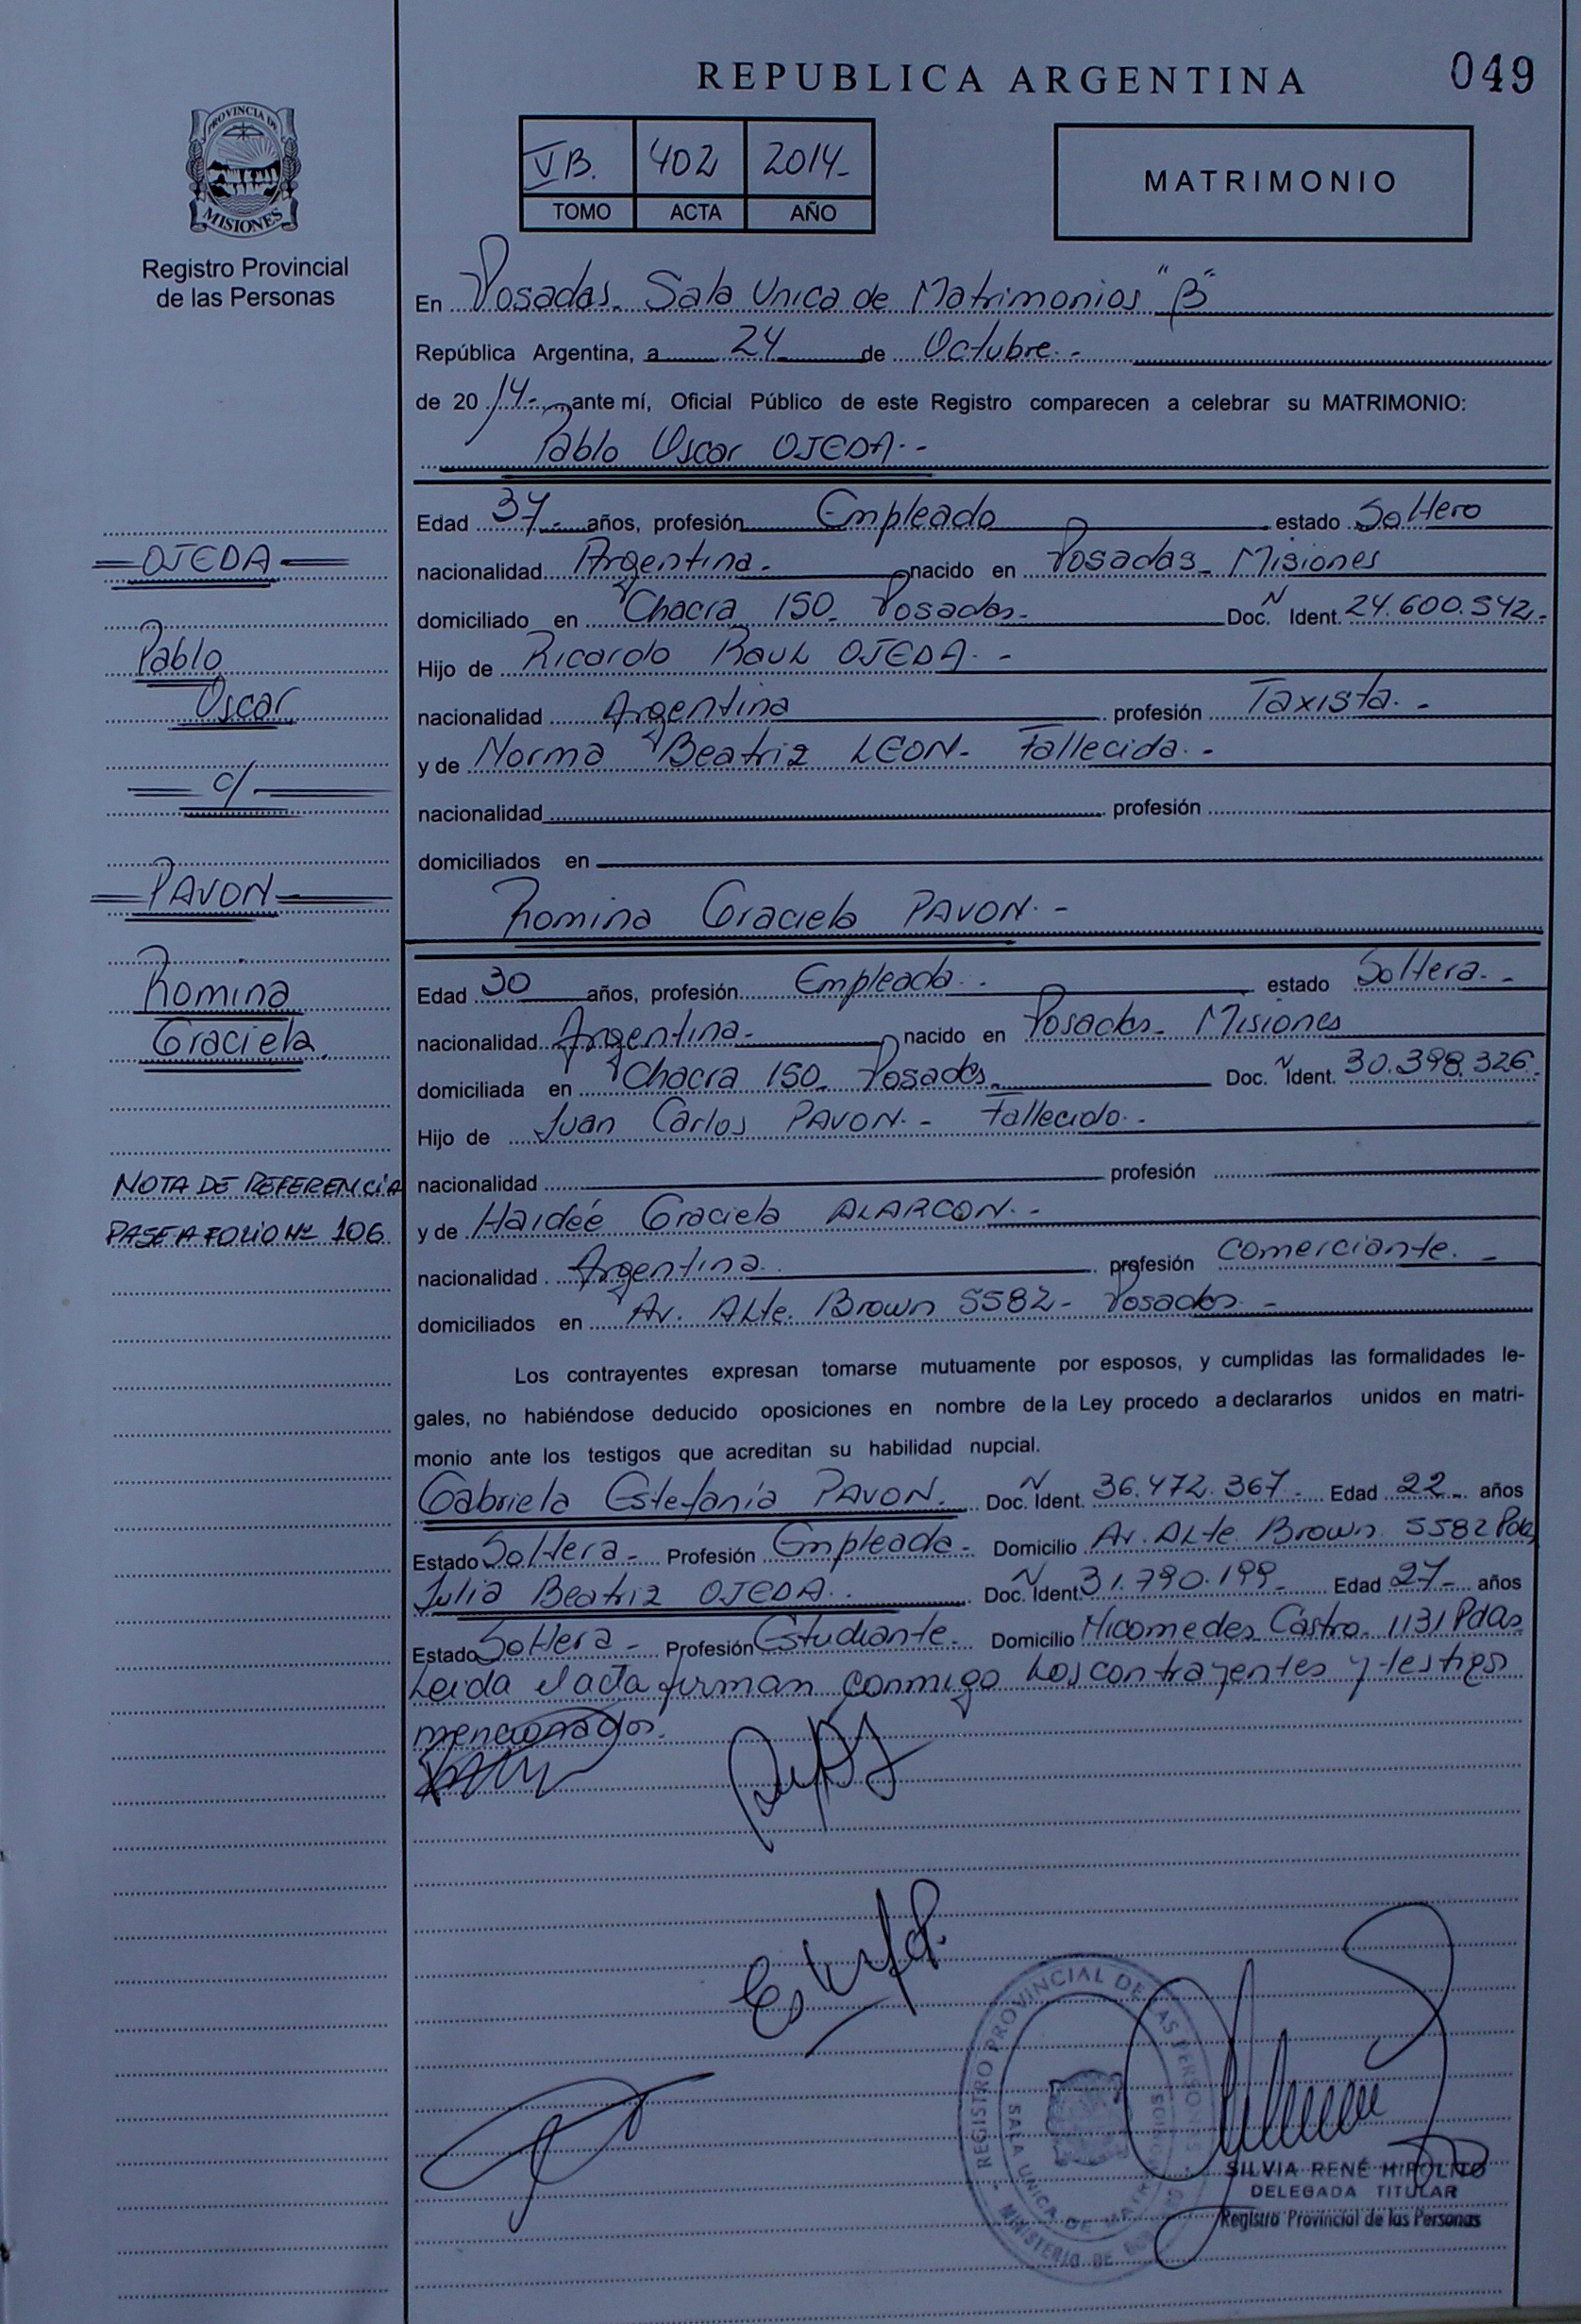 REPUBLICA ARGENTINA 049
PROVINCIA DE MISIONES
Registro Provincial
de las Personas
VB. 402 2014-
TOMO ACTA AÑO
MATRIMONIO
En Posadas- Sala Unica de Matrimonios "B"
República Argentina, a 24 de Octubre.-
de 2014- ante mí, Oficial Público de este Registro comparecen a celebrar su MATRIMONIO:
Pablo Oscar OJEDA.-
Edad 37- años, profesión Empleado estado Soltero
nacionalidad Argentina- nacido en Posadas- Misiones
domiciliado en Chacra 150- Posadas- Doc. N Ident. 24.600.542.-
Hijo de Ricardo Raul OJEDA.-
nacionalidad Argentina profesión Taxista.-
y de Norma Beatriz LEON- Fallecida.-
nacionalidad profesión
domiciliados en
Romina Graciela PAVON.-
Edad 30 años, profesión Empleada.- estado Soltera.-
nacionalidad Argentina- nacido en Posadas- Misiones
domiciliada en Chacra 150- Posadas- Doc. N Ident. 30.398.326.
Hijo de Juan Carlos PAVON.- Fallecido.-
nacionalidad profesión
y de Haideé Graciela ALARCON.-
nacionalidad Argentina. profesión Comerciante.-
domiciliados en Av. Alte. Brown 5582- Posadas-
Los contrayentes expresan tomarse mutuamente por esposos, y cumplidas las formalidades le-
gales, no habiéndose deducido oposiciones en nombre de la Ley procedo a declararlos unidos en matri-
monio ante los testigos que acreditan su habilidad nupcial.
Gabriela Estefanía PAVON. Doc. N Ident. 36.472.367- Edad 22- años
Estado Soltera- Profesión Empleada- Domicilio Av. Alte. Brown 5582 Pdas
Julia Beatriz OJEDA.- Doc. N Ident. 31.790.199- Edad 27- años
Estado Soltera- Profesión Estudiante- Domicilio Nicomedes Castro- 1131 Pdas
Leida el acta firman conmigo los contrayentes y testigos
mencionados.
OJEDA
Pablo
Oscar
c/
PAVON
Romina
Graciela
NOTA DE REFERENCIA
PASE A FOLIO Nº 106
REGISTRO PROVINCIAL DE LAS PERSONAS
SALA UNICA DE MATRIMONIOS
MINISTERIO DE
SILVIA RENÉ HIPOLITO
DELEGADA TITULAR
Registro Provincial de las Personas